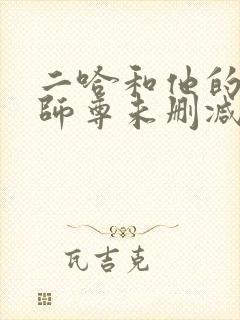 二哈和他的
师尊未删减
瓦吉克